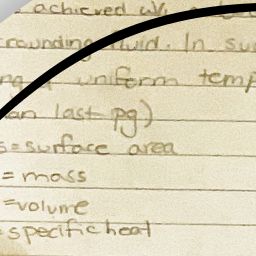 achieved w/
rounding fluid. In su
uniform temp
an last pg)
s=surface area
= mass
=volume
=specific heat